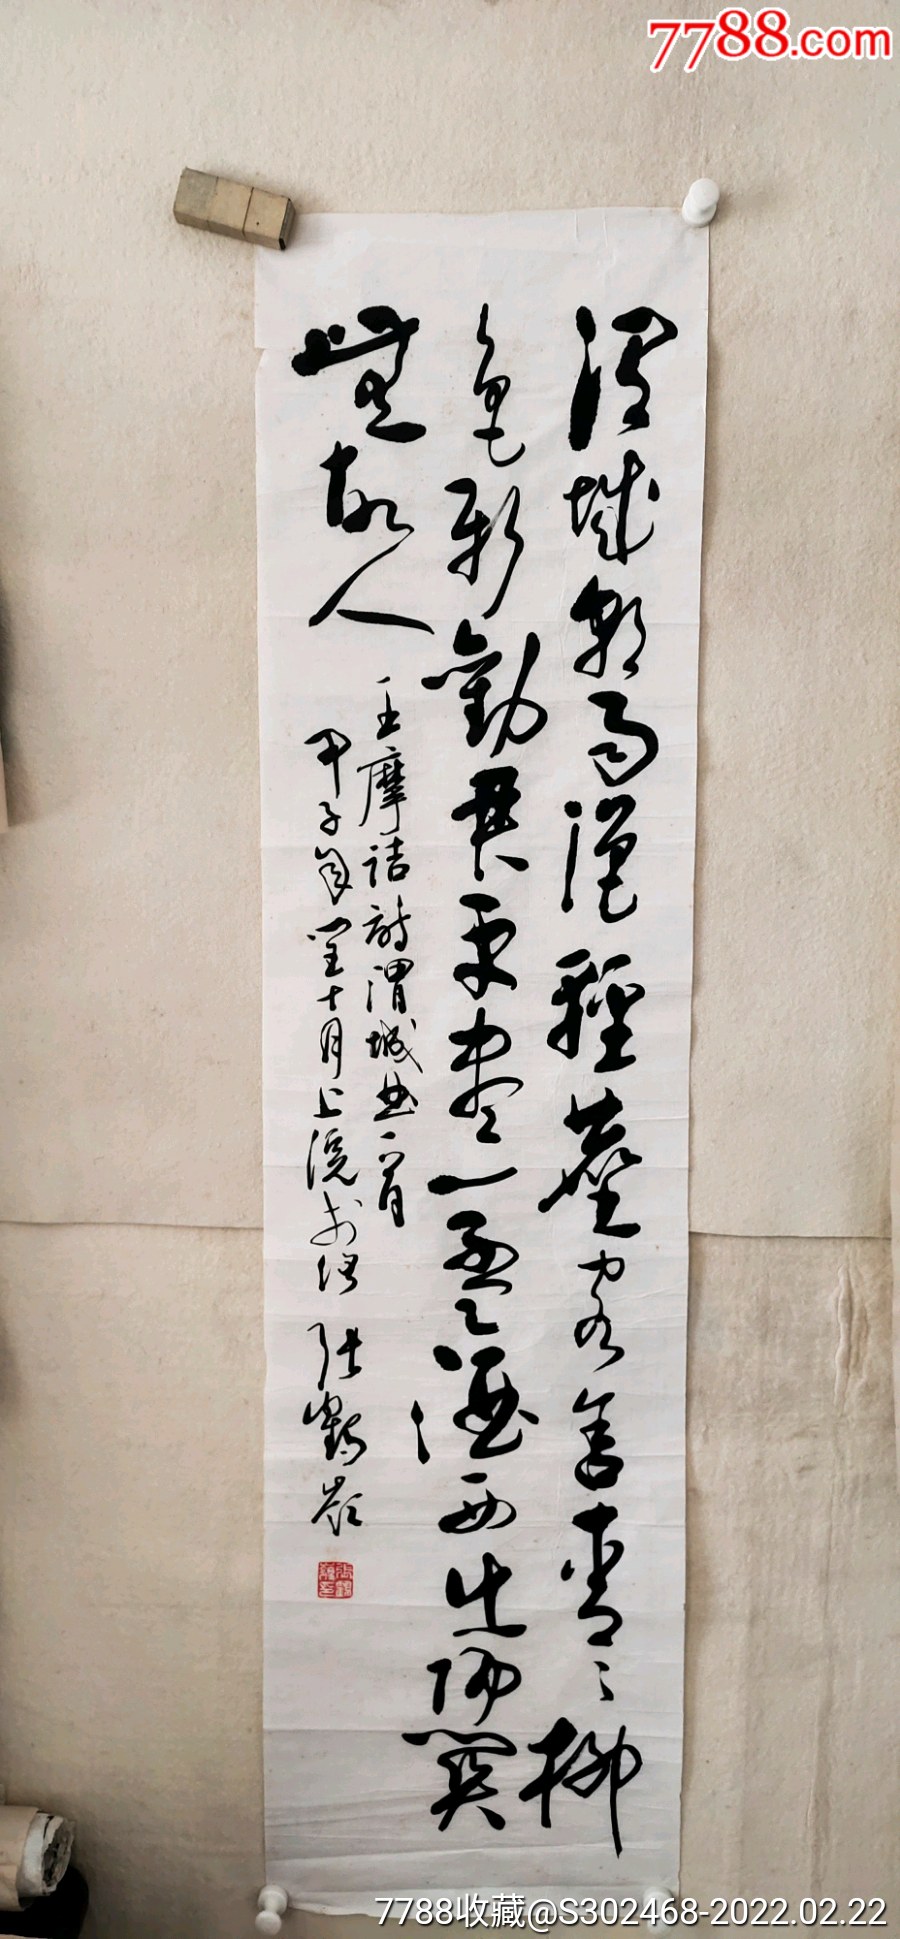 7788.com
渭城朝雨浥轻尘客舍青々柳
色新劝君更尽一杯酒西出阳关
无故人
王摩诘诗渭城曲一首
甲子年闰十月上浣书于
张鹤岭
7788收藏@S302468-2022.02.22